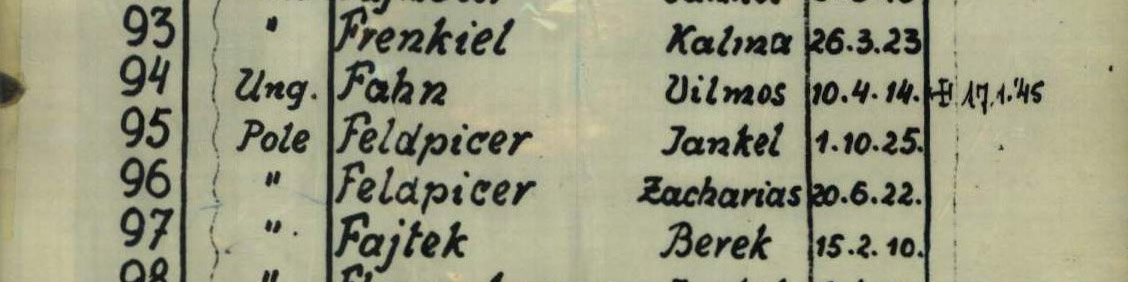 93 " Frenkiel Kalma 26.3.23
94 Ung. Fahn Vilmos 10.4.14. ✠ 17.1.45
95 Pole Feldpicer Jankel 1.10.25.
96 " Feldpicer Zacharias 20.6.22.
97 " Fajtek Berek 15.2.10.
98 "